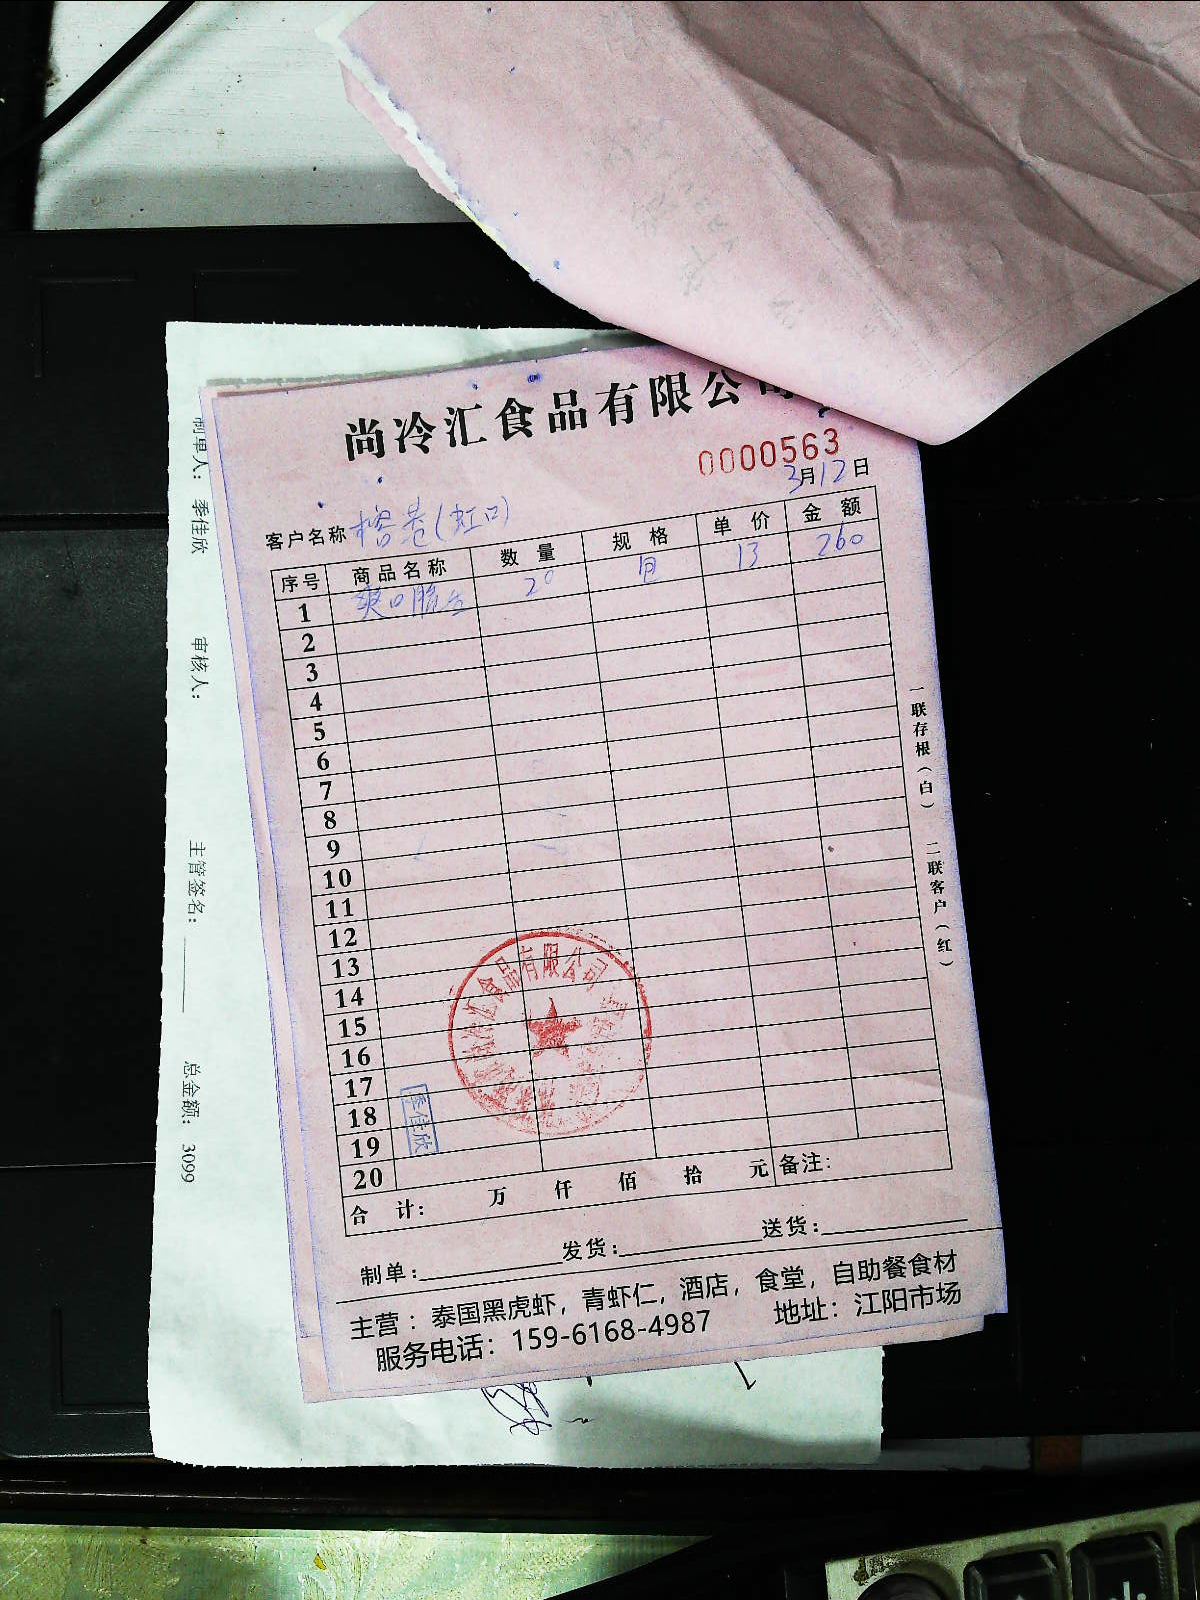 尚冷汇食品有限公司
0000563
3月12日
客户名称 榕巷(虹口)
序号 商品名称 数量 规格 单价 金额
1 爽口脆 20 13 260
2
3
4
5
6
7
8
9
10
11
12
13
14
15
16
17
18
19
20
合计: 万 仟 佰 拾 元 备注:
制单: 发货: 送货:
主营：泰国黑虎虾，青虾仁，酒店，食堂，自助餐食材
服务电话：159-6168-4987 地址：江阳市场
一联存根(白) 二联客户(红)
冷汇食品有限公司
季佳欣
制单人: 季佳欣 审核人: 主管签名: 总金额: 3099